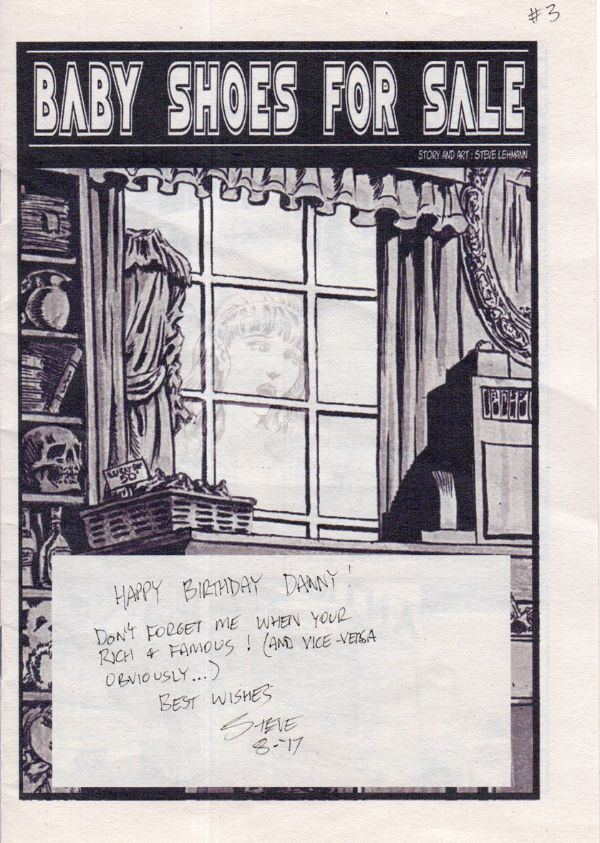 #3
BABY SHOES FOR SALE
STORY AND ART : STEVE LEHMANN
50¢
HAPPY BIRTHDAY DANNY!
DON'T FORGET ME WHEN YOUR
RICH & FAMOUS! (AND VICE-VERSA
OBVIOUSLY...)
BEST WISHES
STEVE
8-'17